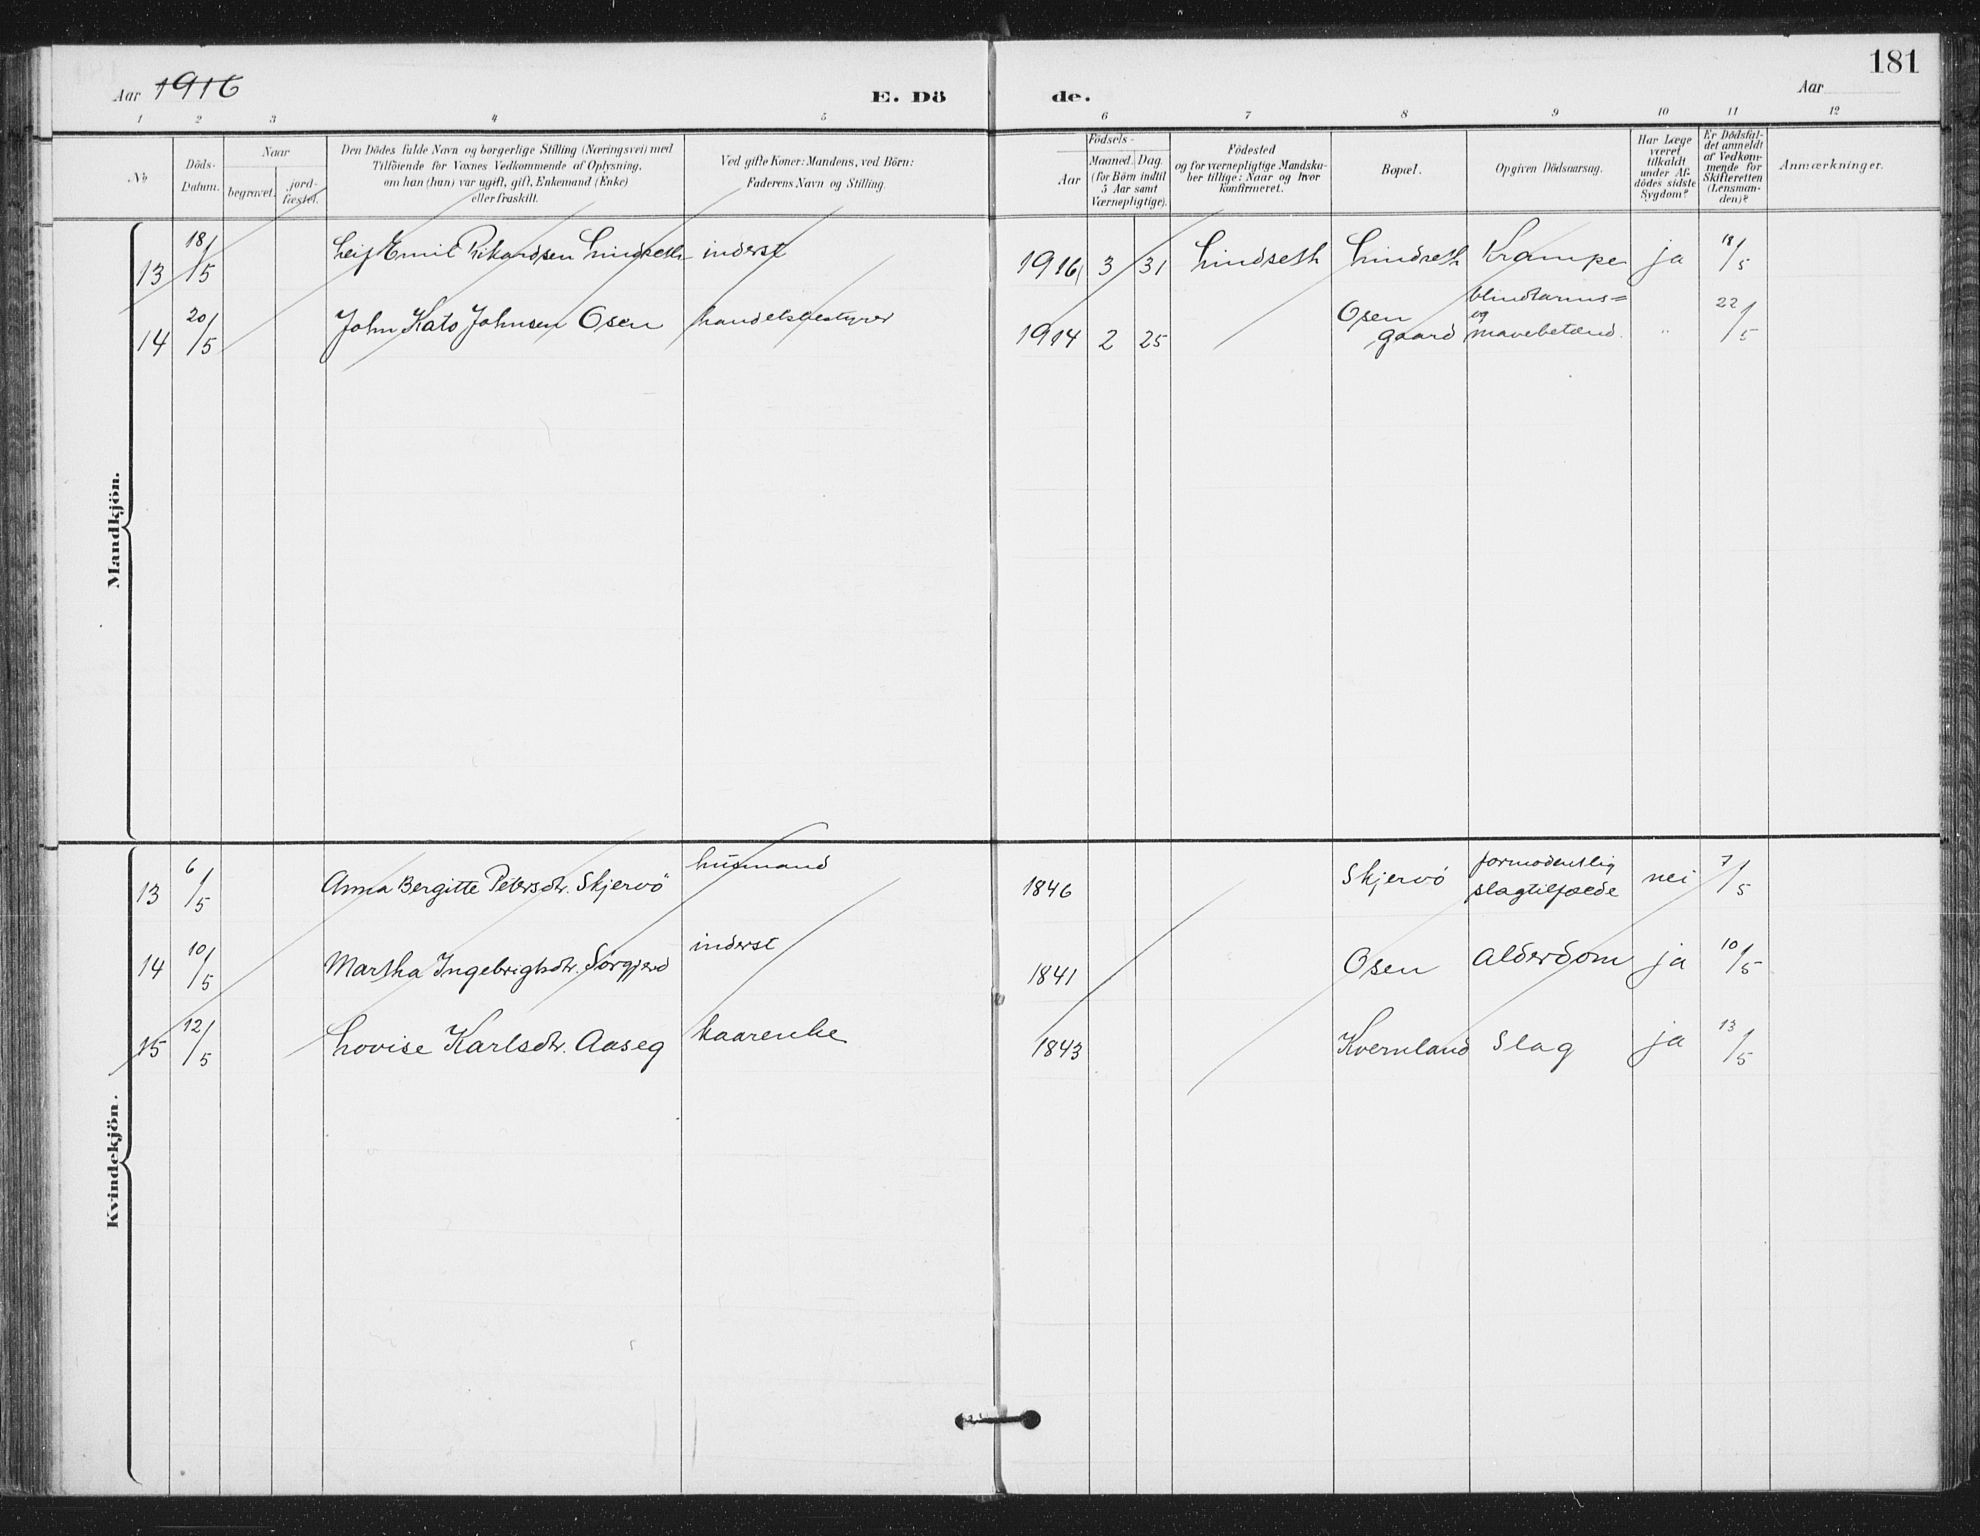 Aar 1916 E. Dö de. Aar 181
1 2 3 4 5 6 7 8 9 10 11 12
No
Döds-
Datum.
Naar
begravet.
jord-
fæstet.
Den Dödes fulde Navn og borgerlige Stilling (Næringsvei) med
Tilföiende for Voxnes Vedkommende af Oplysning,
om han (hun) var ugift, gift, Enkemand (Enke)
eller fraskilt.
Ved gifte Koner: Mandens, ved Börn:
Faderens Navn og Stilling.
Födsels-
Aar
Maaned. Dag.
(for Börn indtil
5 Aar samt
Værnepligtige).
Födested
og for værnepligtige Mandska-
ber tillige: Naar og hvor
konfirmeret.
Bopæl.
Opgiven Dödsaarsag.
Har Læge
været
tilkaldt
under Af-
dödes sidste
Sygdom?
Er Dödsfal-
det anmeldt
af Vedkom-
mende for
Skifteretten
(Lensman-
den)?
Anmærkninger.
Mandkjön.
13 18/5 Leif Emil Rikardsen Lindseth inderst 1916 3 31 Lindseth Lindseth Krampe ja 18/5
14 20/5 John Kato Johnsen Osen handelsbestyrer 1914 2 25 Osen gaard blindtarms= og mavebetænd. " 22/5
Kvindekjön.
13 6/5 Anna Bergitte Petersdtr. Skjervö husmand 1846 Skjervö formodentlig slagtilfælde nei 7/5
14 10/5 Martha Ingebrigtsdtr. Sörgjerd inderst 1841 Osen Alderdom ja 10/5
15 12/5 Lovise Karlsdtr. Aaseg kaarenke 1843 Kvernland Slag ja 13/5